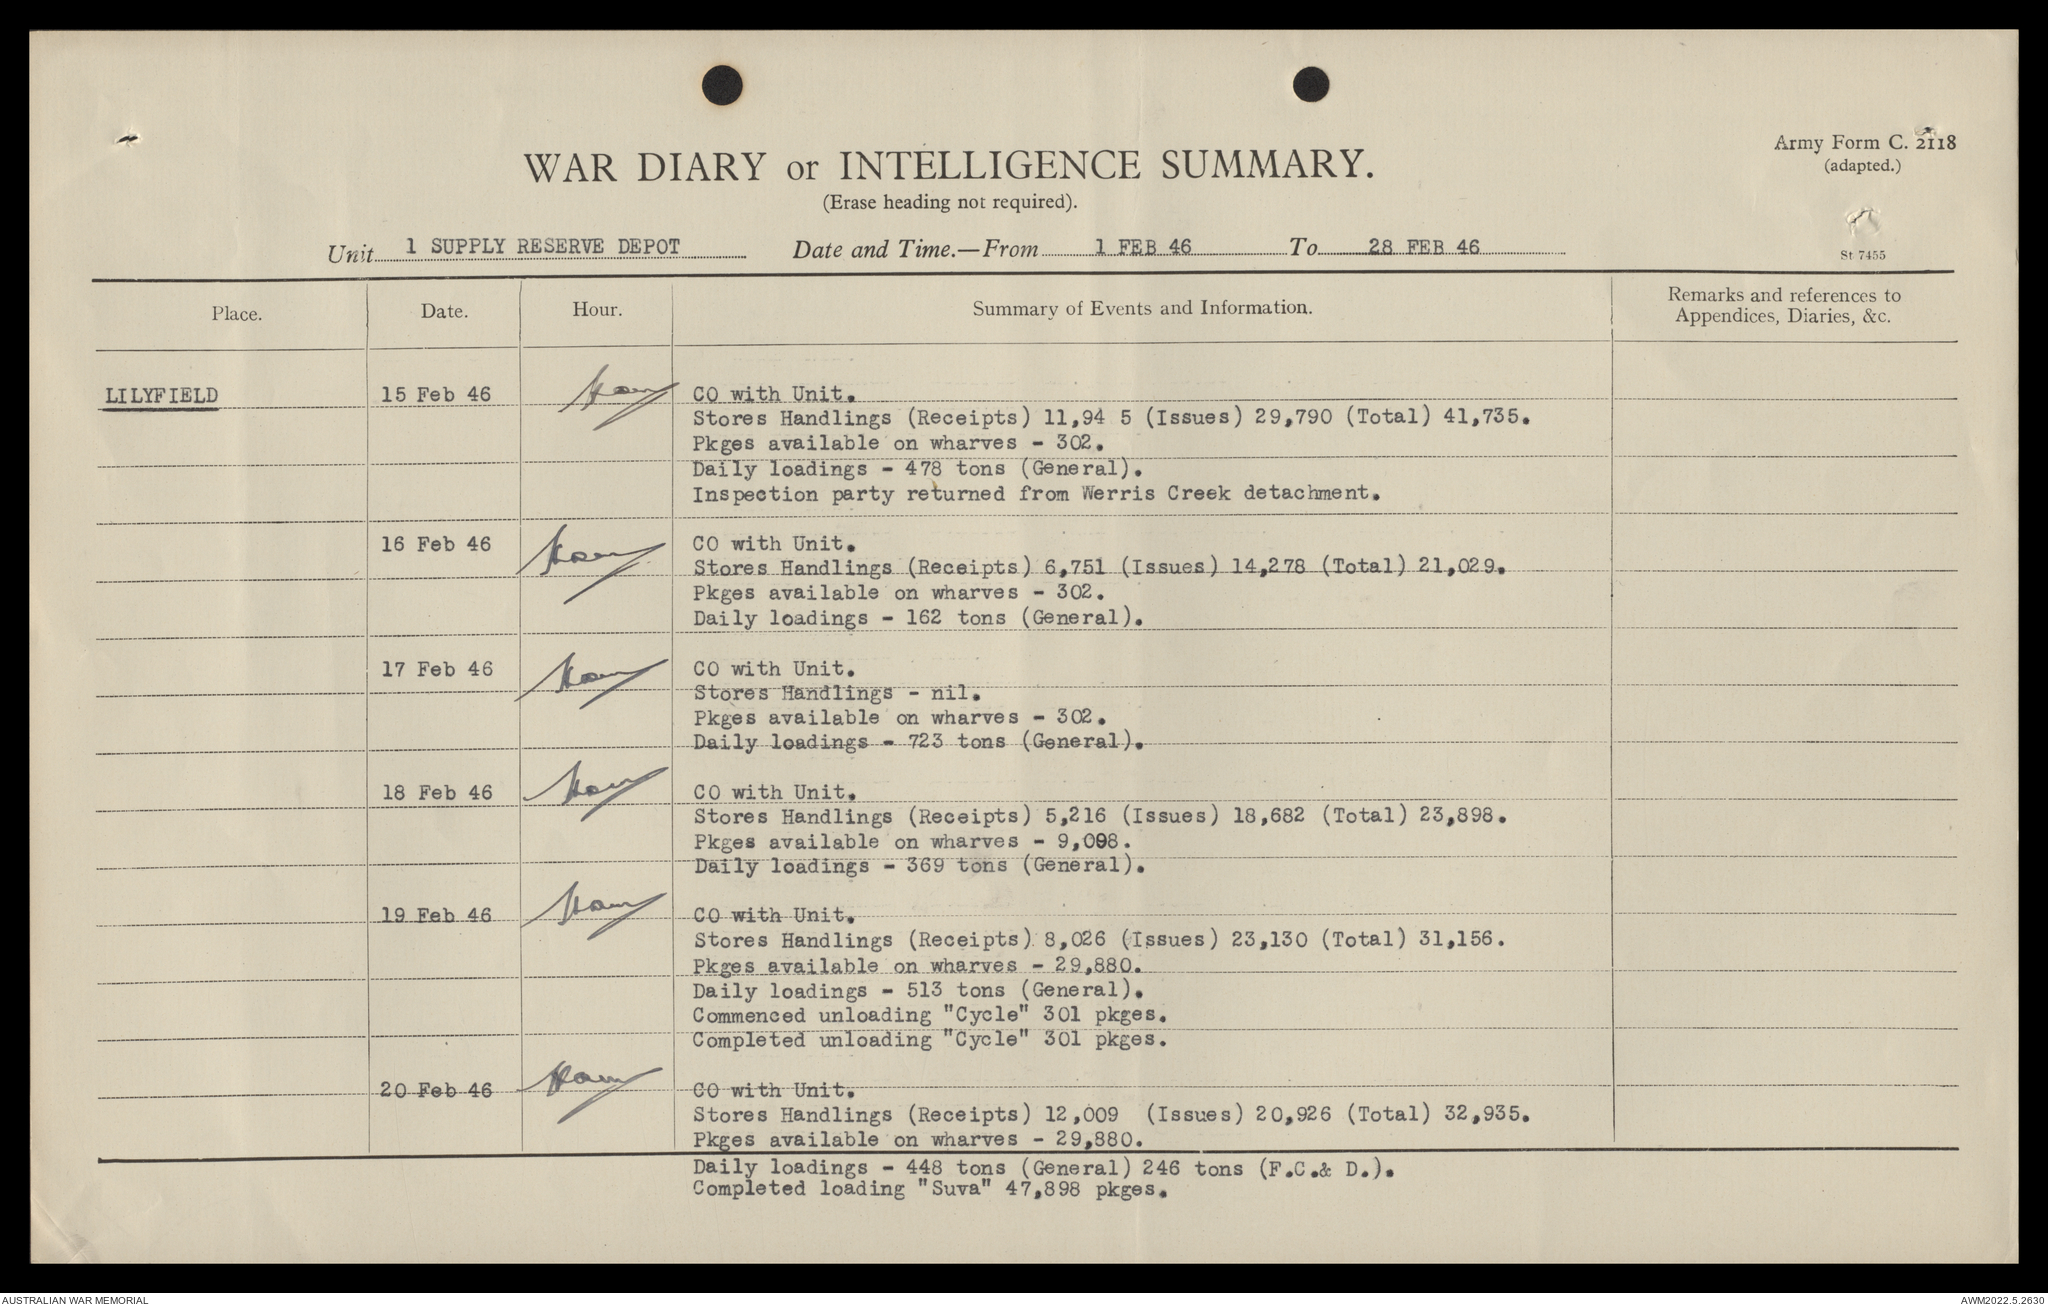 Army Form C. 2118
(adapted.)
WAR DIARY or INTELLIGENCE SUMMARY.
(Erase heading not required).
St 7455
Unit 1 SUPPLY RESERVE DEPOT Date and Time.—From 1 FEB 46 To 28 FEB 46
Place. Date. Hour. Summary of Events and Information. Remarks and references to Appendices, Diaries, &c.
LILYFIELD 15 Feb 46 CO with Unit.
Stores Handlings (Receipts) 11,94 5 (Issues) 29,790 (Total) 41,735.
Pkges available on wharves - 302.
Daily loadings - 478 tons (General).
Inspection party returned from Werris Creek detachment.
16 Feb 46 CO with Unit.
Stores Handlings (Receipts) 6,751 (Issues) 14,278 (Total) 21,029.
Pkges available on wharves - 302.
Daily loadings - 162 tons (General).
17 Feb 46 CO with Unit.
Stores Handlings - nil.
Pkges available on wharves - 302.
Daily loadings - 723 tons (General).
18 Feb 46 CO with Unit.
Stores Handlings (Receipts) 5,216 (Issues) 18,682 (Total) 23,898.
Pkges available on wharves - 9,098.
Daily loadings - 369 tons (General).
19 Feb 46 CO with Unit.
Stores Handlings (Receipts) 8,026 (Issues) 23,130 (Total) 31,156.
Pkges available on wharves - 29,880.
Daily loadings - 513 tons (General).
Commenced unloading "Cycle" 301 pkges.
Completed unloading "Cycle" 301 pkges.
20 Feb 46 CO with Unit.
Stores Handlings (Receipts) 12,009 (Issues) 20,926 (Total) 32,935.
Pkges available on wharves - 29,880.
Daily loadings - 448 tons (General) 246 tons (F.C.& D.).
Completed loading "Suva" 47,898 pkges.
AUSTRALIAN WAR MEMORIAL
AWM2022.5.2630